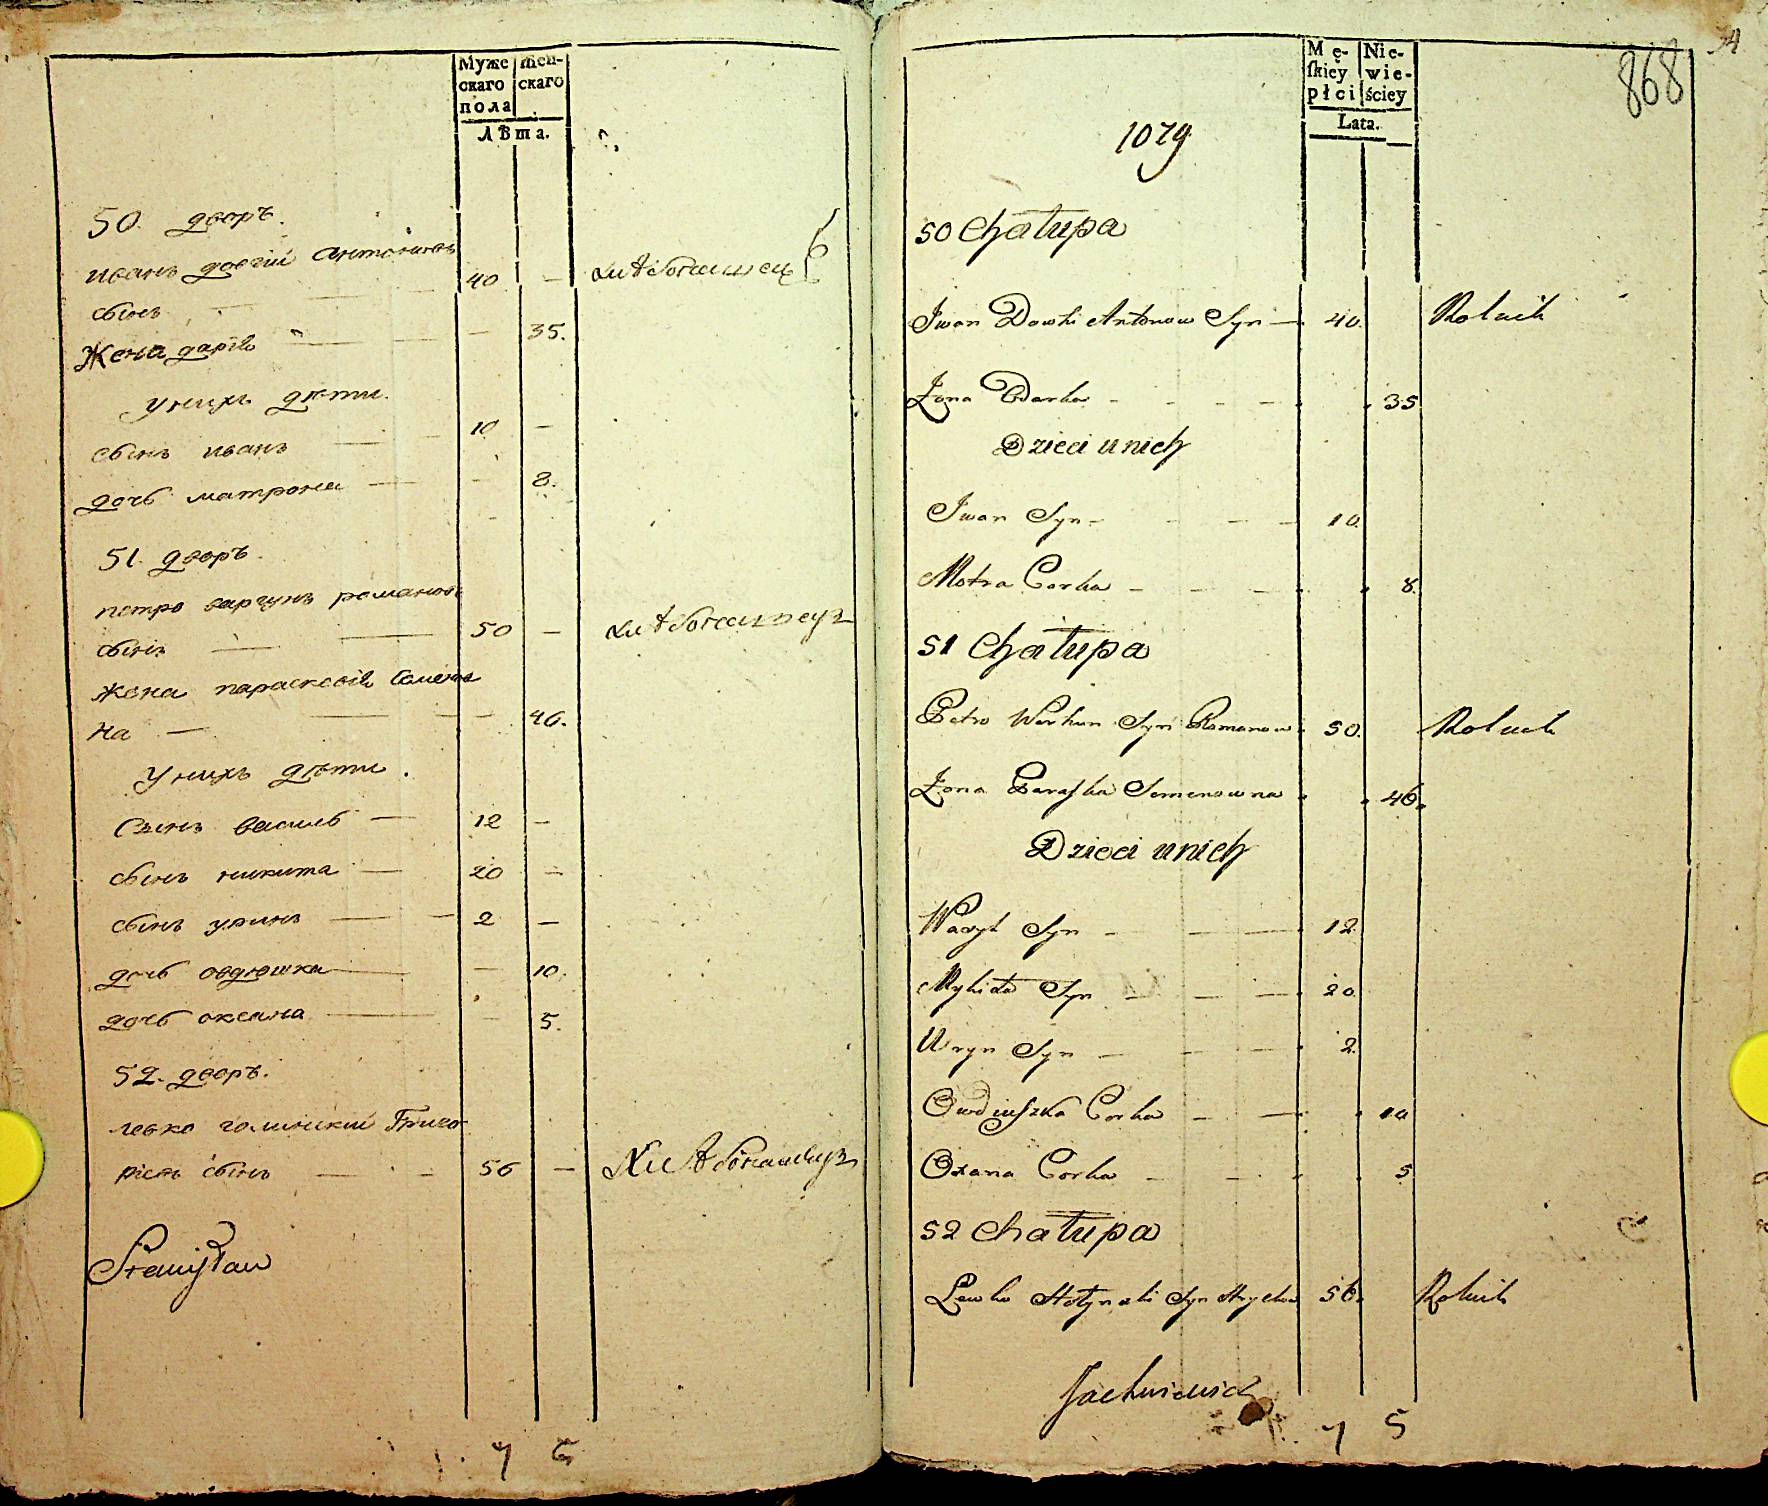 Муже
скаго
пола
Жен-
скаго
Лѣта.
50. дворъ.
иванъ довгій антоновъ
сынъ 40 —
жена дарія — 35.
у нихъ дѣти.
сынъ иванъ 10 —
дочь матрона — 8.
51. дворъ.
петро варгунъ романовъ
сынъ — 50 —
жена параскевія семено
на — 46.
у нихъ дѣти.
сынъ василь — 12 —
сынъ никита — 20 —
сынъ уринъ — 2 —
дочь овдюшка — 10.
дочь оксана — 5.
52. дворъ.
левко голинскій Григо
рієвъ сынъ — 56 —
Stanisław
7 5
868
Mę-
ſkiey
płci
Nie-
wie-
ściey
Lata.
1079
50 Chałupa
Iwan Dowhi Antonow Syn — 40. Rolnik
Żona Darka - - - - 35
Dzieci u nich
Iwan Syn - - - 10.
Motra Corka - - - - 8.
51 Chałupa
Petro Warhun Syn Romanow 50. Rolnik
Żona Paraſka Semenowna 46.
Dzieci u nich
Wasyl Syn - - - 12.
Mykita Syn - - - 20.
Uryn Syn - - - 2.
Owdiuszka Corka - - 10
Oxana Corka - - 5
52 Chałupa
Lewko Hołynski Syn Hryckow 56. Rolnik
Jachniewicz
7 5